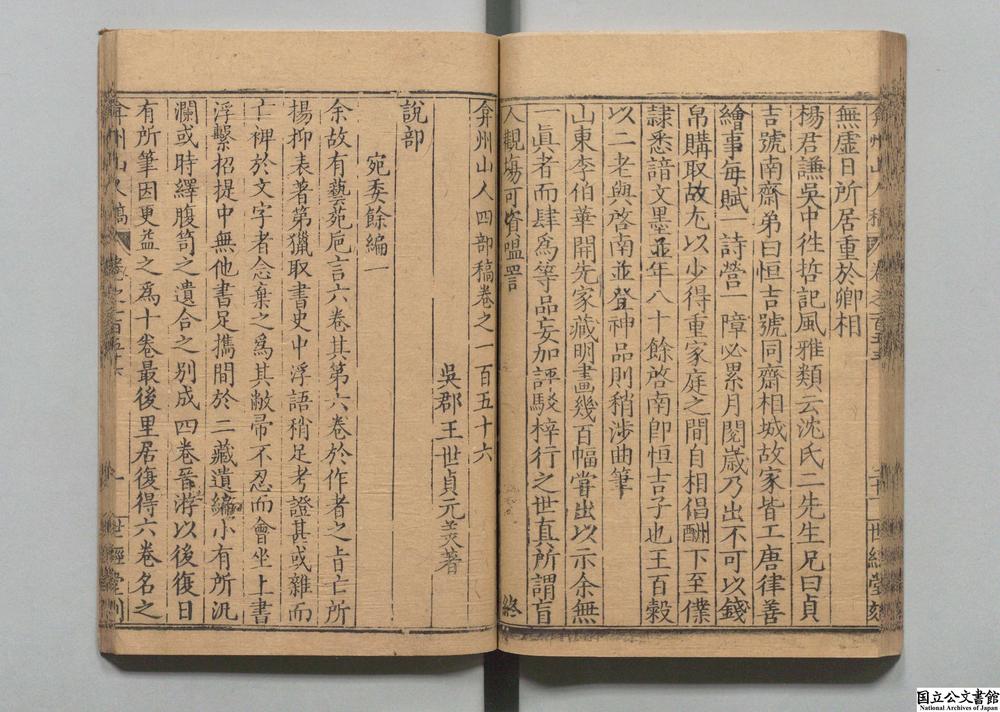 無虛日所居重於卿相
楊君謙吳中徃哲記風雅類云沈氏二先生兄曰貞
吉號南齋弟曰恒吉號同齋相城故家皆工唐律善
繪事每賦一詩營一障必累月閱歲乃出不可以錢
帛購取故尢以少得重家庭之間自相倡酬下至僕
隷悉諳文墨並年八十餘啓南卽恒吉子也王百穀
以二老與啓南並登神品則稍涉曲筆
山東李伯華開先家藏明畫幾百幅嘗出以示余無
一眞者而肆爲等品妄加評駁梓行之世真所謂盲
人觀塲可資嗢噱 終
弇州山人四部稿卷之一百五十六
吳郡王世貞元美著
說部
宛委餘編一
余故有藝苑巵言六卷其第六卷於作者之㫖亡所
揚抑表著第獵取書史中浮語稍足考證甚或雜而
亡裨於文字者念棄之爲其敝帚不忍而會坐上書
浮繫招提中無他書足擕間於二藏遺編小有所汎
瀾或時繹腹笥之遺合之別成四卷晉游以後復日
有所筆因更益之爲十卷最後里居復得六卷名之
弇州山人稿 卷之一百五十六 一 世經堂刻
國立公文書館
National Archives of Japan